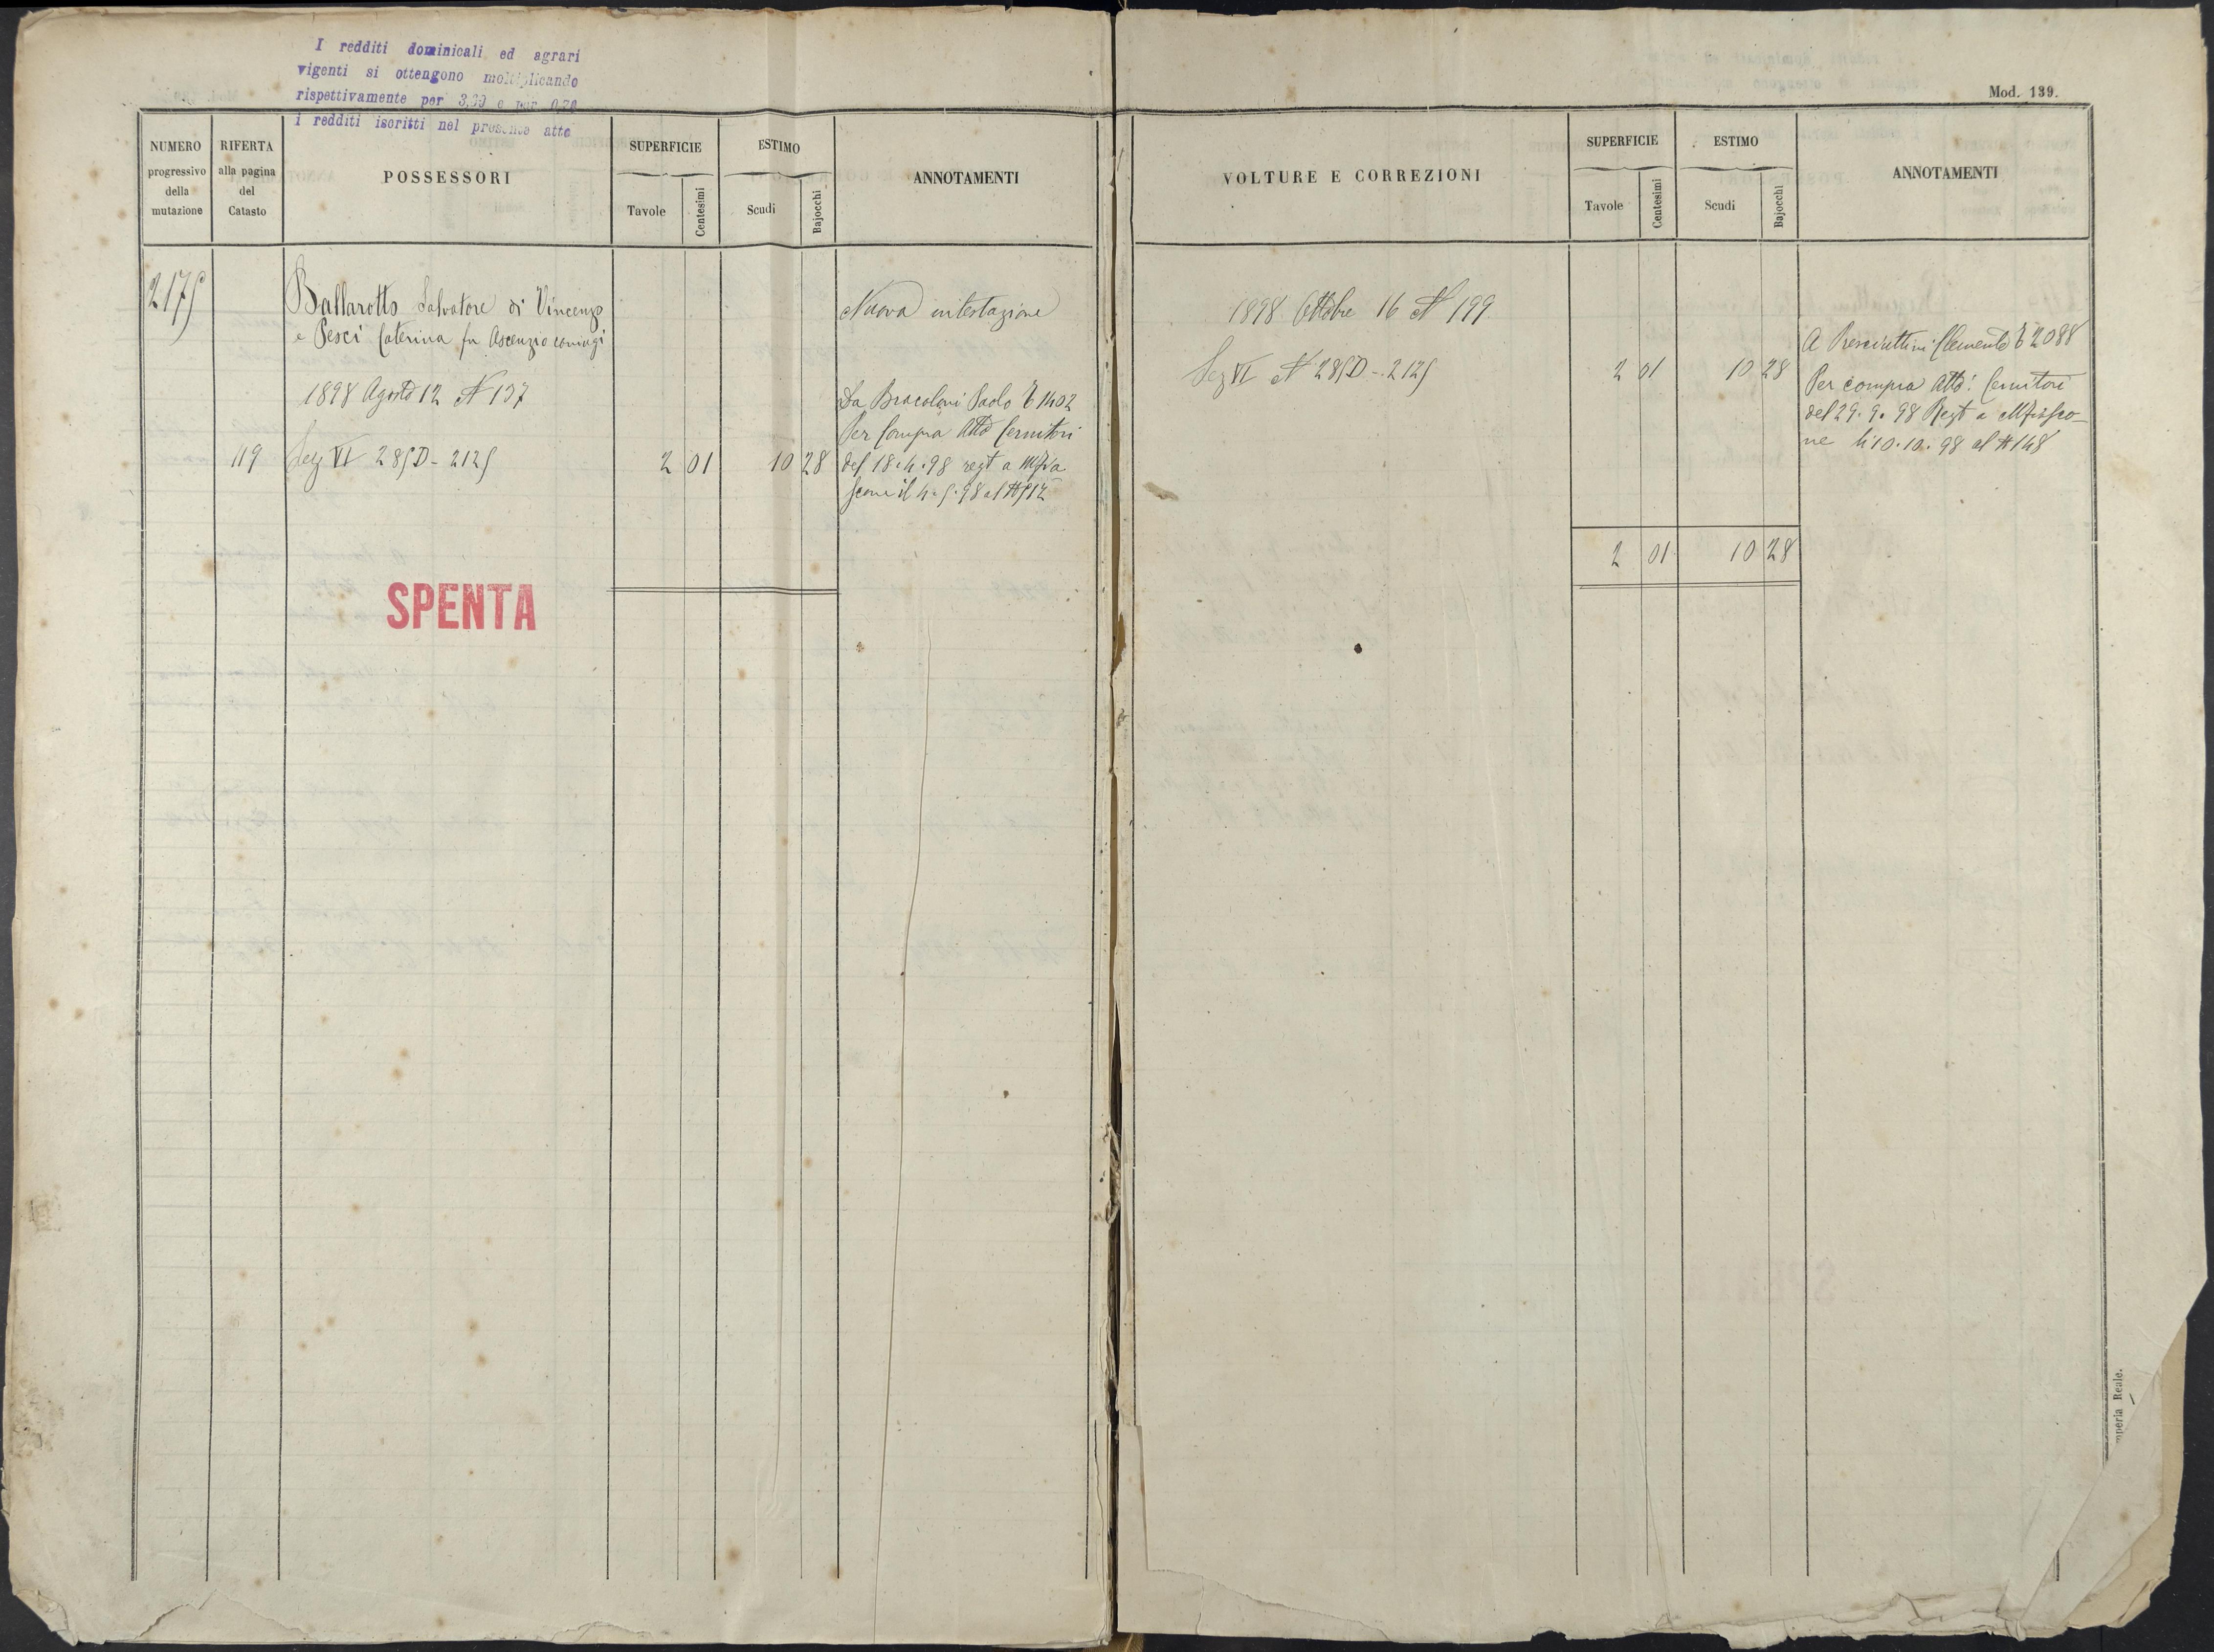 I redditi dominicali ed agrari
vigenti si ottengono moltiplicando
rispettivamente per 3,00 e per 0,70
i redditi iscritti nel presente atto
NUMERO
progressivo
della
mutazione
RIFERTA
alla pagina
del
Catasto
POSSESSORI
SUPERFICIE
Tavole
Centesimi
ESTIMO
Scudi
Bajocchi
ANNOTAMENTI
2175
Ballarotto Salvatore di Vincenzo
e Pesci Caterina fu Ascenzio coniugi
Nuova intestazione
1898 Agosto 12 N 137
Da Bracoloni Paolo 1402
Per Compra Atto Cernitori
119 Sez VI 285D - 2125 2 01 10 28
del 18.4.98 regt a Mfia
scone il 4.5.98 al N 912
SPENTA
Mod. 139.
VOLTURE E CORREZIONI
SUPERFICIE
Tavole
Centesimi
ESTIMO
Scudi
Bajocchi
ANNOTAMENTI
1898 Ottobre 16 N 199
Sez VI N 285D - 2125 2 01 10 28
A Clemente 2088
Per compra Atto: Cernitori
del 29.9.98 Regt a Mfiasco-
ne li 10.10.98 al N 148
2 01 10 28
mperia Reale.